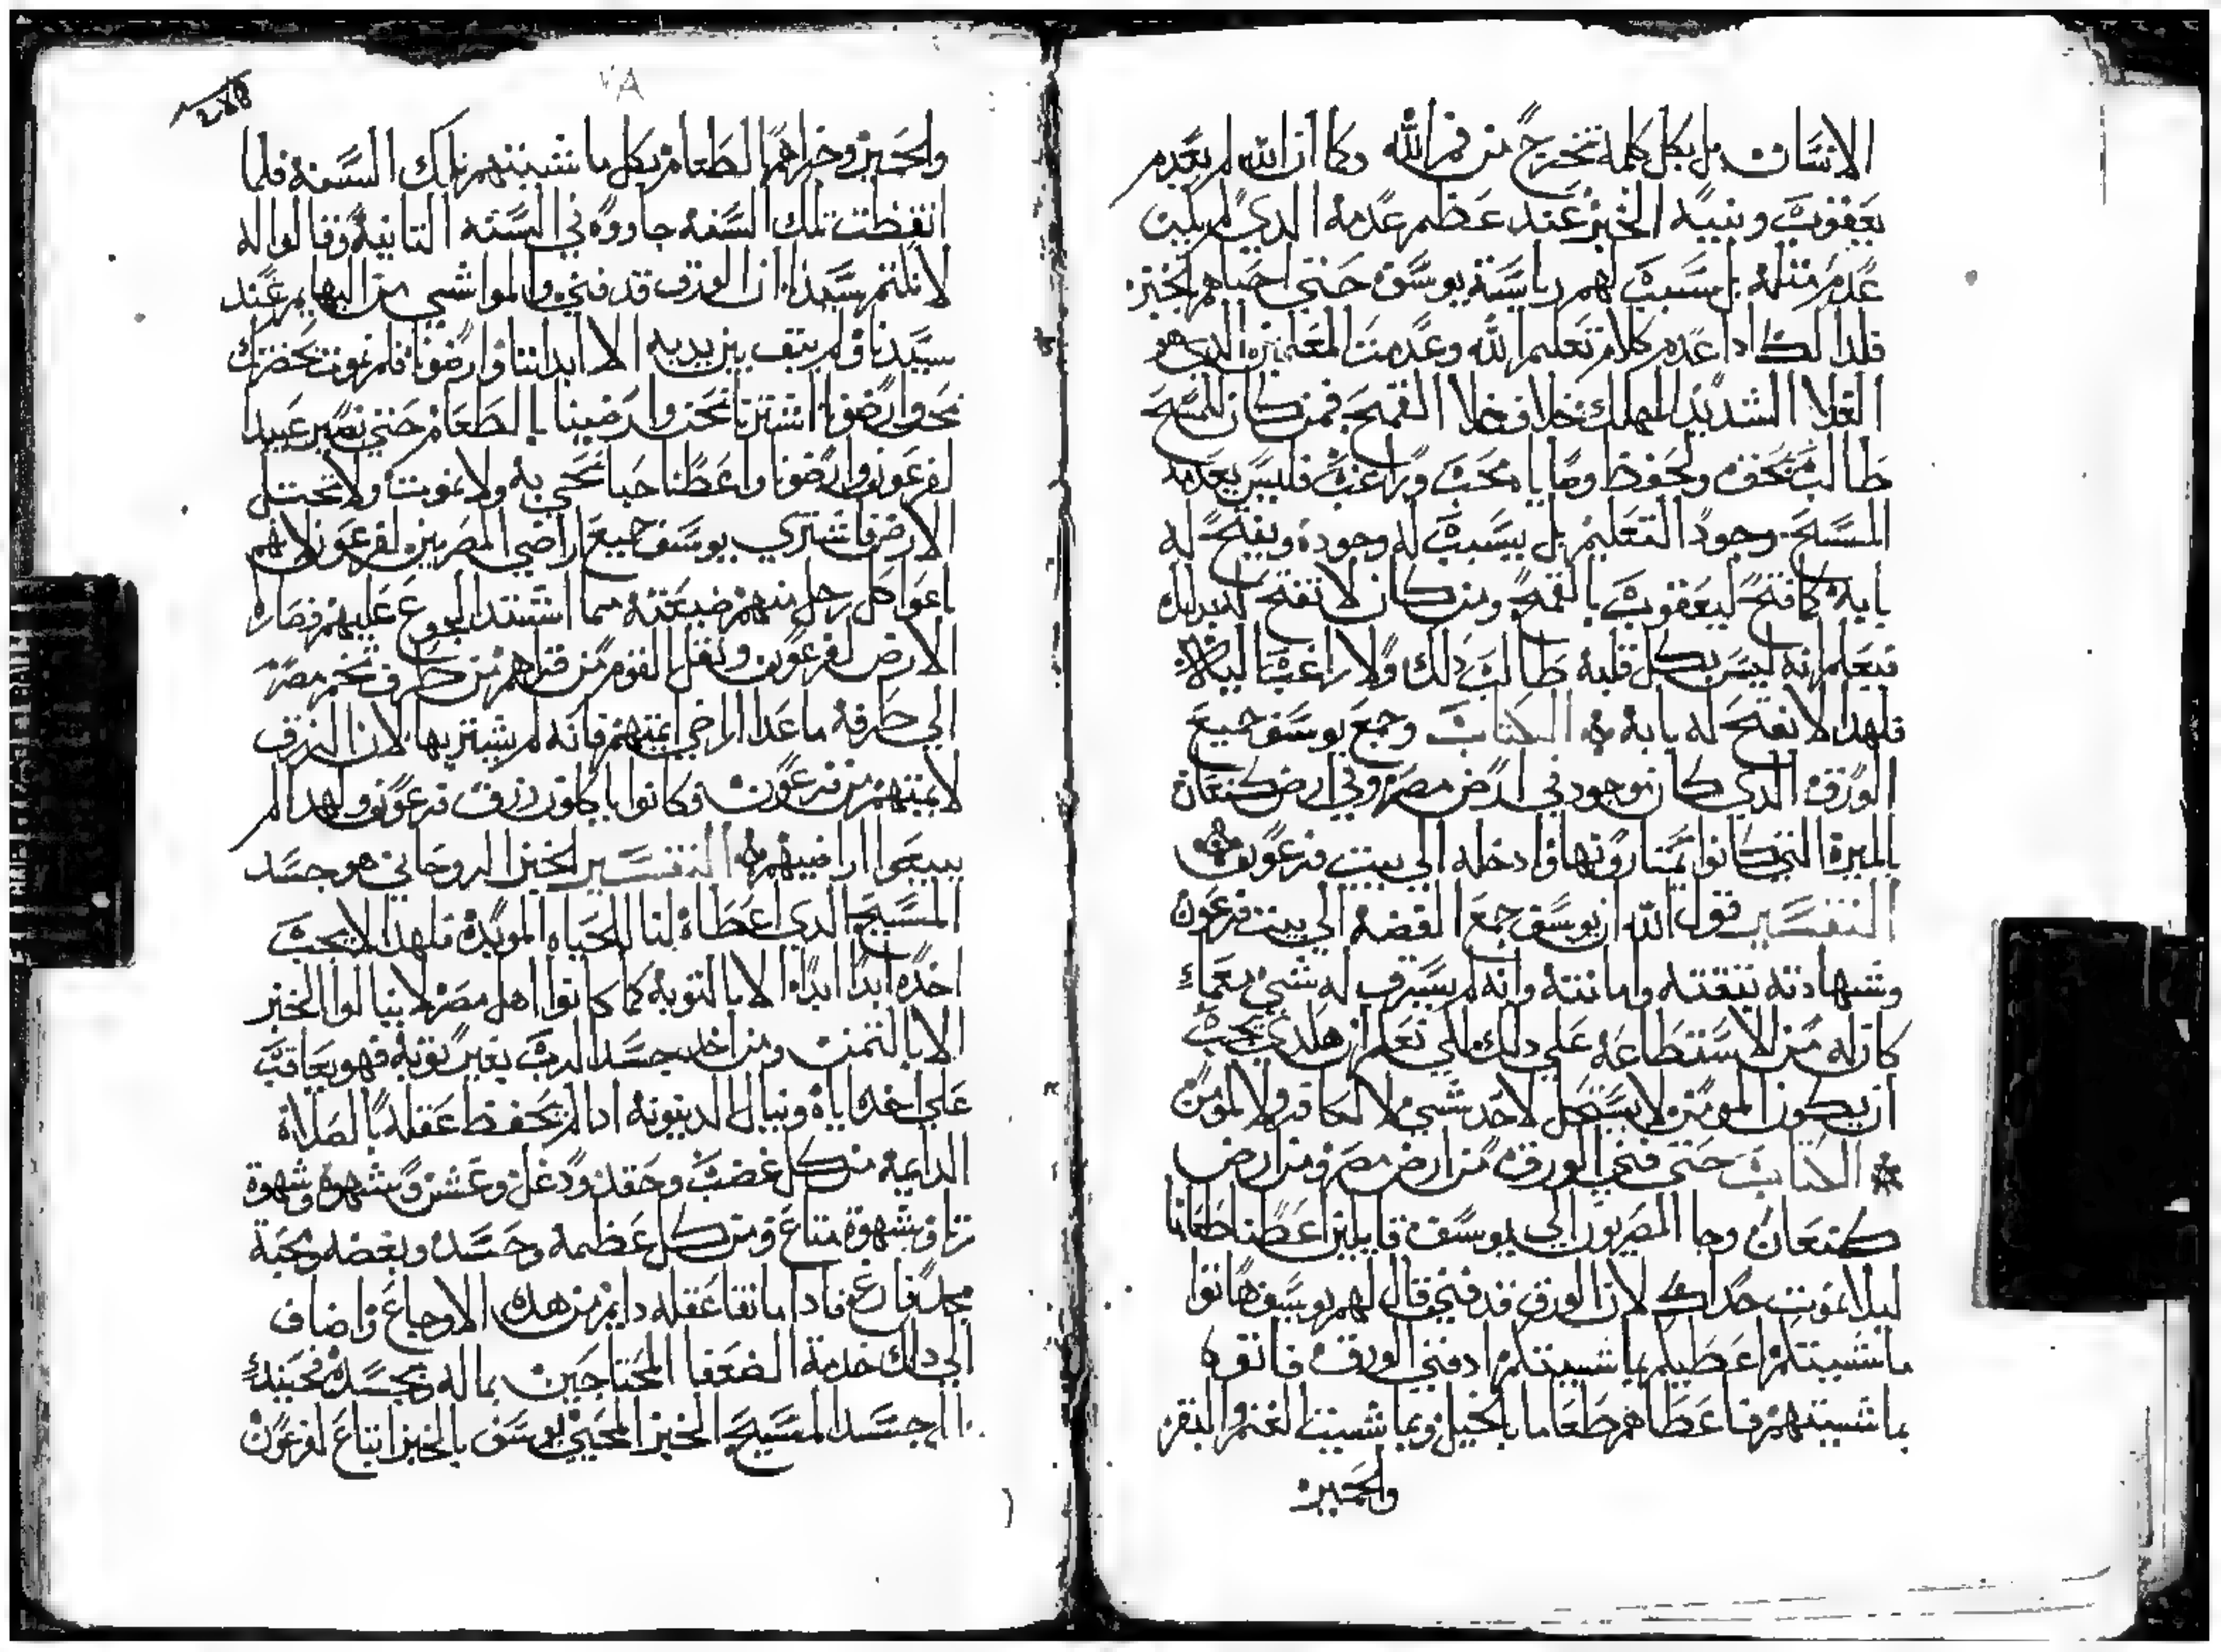 الانسان بل بكل كلمة تخرج من فم الله وكما ان الله لم يعدم
يعقوب وبنيه الخبز عند عظم عدمه الدي لم يكن
عدم مثله بل سبب لهم رياسة يوسف حتي احياهم بالخبز
فلدالك ادا عدم كلام تعليم الله وعدمت المعلمين الدي هو
الغلا الشديد المهلك خلاف غلا القمح فمن كان للمسيح
طالب بحق ولحفظ وصايا محب وراغب فليس يعدمه
المسيح وجود التعليم بل يسبب له وجوده ويفتح له
بابه كما فتح ليعقوب بالقمح ومن كان لا تفتح له
فيعلم انه ليس بكل قلبه طالب دلك ولا راغب اليه
فلهدا لا يفتح له بابه الكتاب وجمع يوسف جميع
الورق الدي كان موجود في ارض مصر وفي ارض كنعان
بالميرة التي كانوا يمتارونها وادخله الي بيت فرعون
التفسير قول الله ان يوسف جمع الفضه الي بيت فرعون
وشهادته بثقته وامانته وانه لم يسرق له شي مع ما
كان له من الاستطاعه علي دلك لكي تعلم ان هكدي يجب
ان يكون المومن لا يستحل لاحد شي لا لكافر ولا لمومن
الكتاب حتي فني الورق من ارض مصر ومن ارض
كنعان وجا المصريون الي يوسف قايلين اعطنا طعاما
ليلا نموت حداك لان الورق قد فني فقال لهم يوسف هاتوا
ماشيتكم اعطيكم بماشيتكم اد فني الورق فاتوه
بماشيتهم فاعطاهم طعاما بالخيل وبماشيت الغنم والبقر
والحمير
٧٨
والحمير وخزاهم الطعام بكل ماشيتهم تلك السنه فلما
انقضت تلك السنه جاووه في السنه التانيه وقالوا له
لا نكتم سيدنا ان الورق قد فني والمواشي من البهايم عند
سيدنا ولم يبق بين يديه الا ابداننا وارضونا فلم نموت بحضرتك
نحن وارضونا اشترنا نحن وارضينا بالطعام حتي نصير عبيدا
لفرعون وارضونا واعطنا حبا نحيي به ولا نموت ولا تختل
الارض فاشتري يوسف جميع اراضي المصريين لفرعون لانهم
باعوا كل رجل منهم ضيعته مما اشتد الجوع عليهم فصاره
الارض لفرعون ونقل القوم من قراهم من طرف تخم مصر
الي طرفه ما عدا اراضي ايمتهم فانه لم يشتريها لان الرزق
لايمتهم من فرعون فكانوا ياكلون رزق فرعون ولهدا لم
يبيعوا اراضيهم التفسير الخبز الروحاني هو جسد
المسيح الدي اعطاه لنا للحياه الموبده فلهدا لا يجب
اخده ابدا ابدا الا بالتوبه كما كانوا اهل مصر لا ينالوا الخبز
الا بالتمن ومن اخد جسد الرب بغير توبه فهو يعاقب
علي اخده اياه وينال الدينونه ادا لم يحفظ عقله بالصلاة
الدايمه من كل غضب وحقد ودغل وغش وشهوه وشهوة
زنا وشهوة متاع ومن كل عظمه وحسد وبغضه ومحبة
مجد فارغ فادا ما نقا عقله دايم من هده الاوجاع واضاف
الي دلك خدمة الضعفا المحتاجين بماله وبجسده فحينيد
جسد المسيح الخبز المحيي يوسف بالخبز ابتاع لفرعون